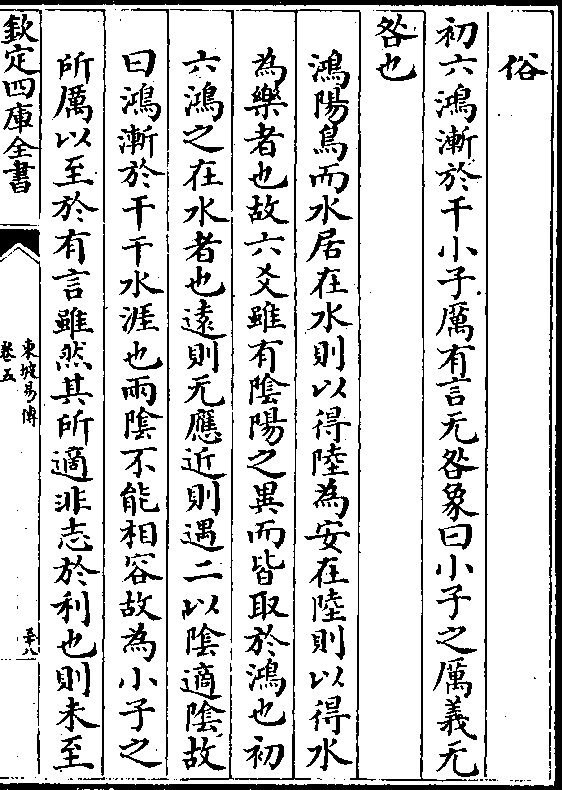 俗
初六鴻漸於干小子厲有言无咎象曰小子之厲義无
咎也
鴻陽鳥而水居在水則以得陸為安在陸則以得水
為樂者也故六爻雖有陰陽之異而皆取於鴻也初
六鴻之在水者也遠則无應近則遇二以陰適陰故
曰鴻漸於干干水涯也兩陰不能相容故為小子之
所厲以至於有言雖然其所適非志於利也則未至
欽定四庫全書
東坡易傳
卷五